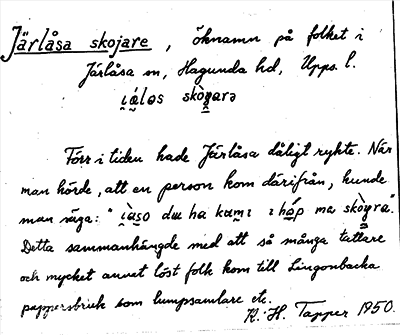 Järlåsa skojare, öknamn på folket i
Järlåsa sn, Hagunda hd, Upps. l.
skòjarə
Förr i tiden hade Järlåsa dåligt rykte. När
man hörde, att en person kom därifrån, kunde
man säga: " du ha ma
Detta sammanhängde med att så många tattare
och mycket annat löst folk kom till Lingonbacka
pappersbruk som lumpsamlare etc.
K. H. Tapper 1950.